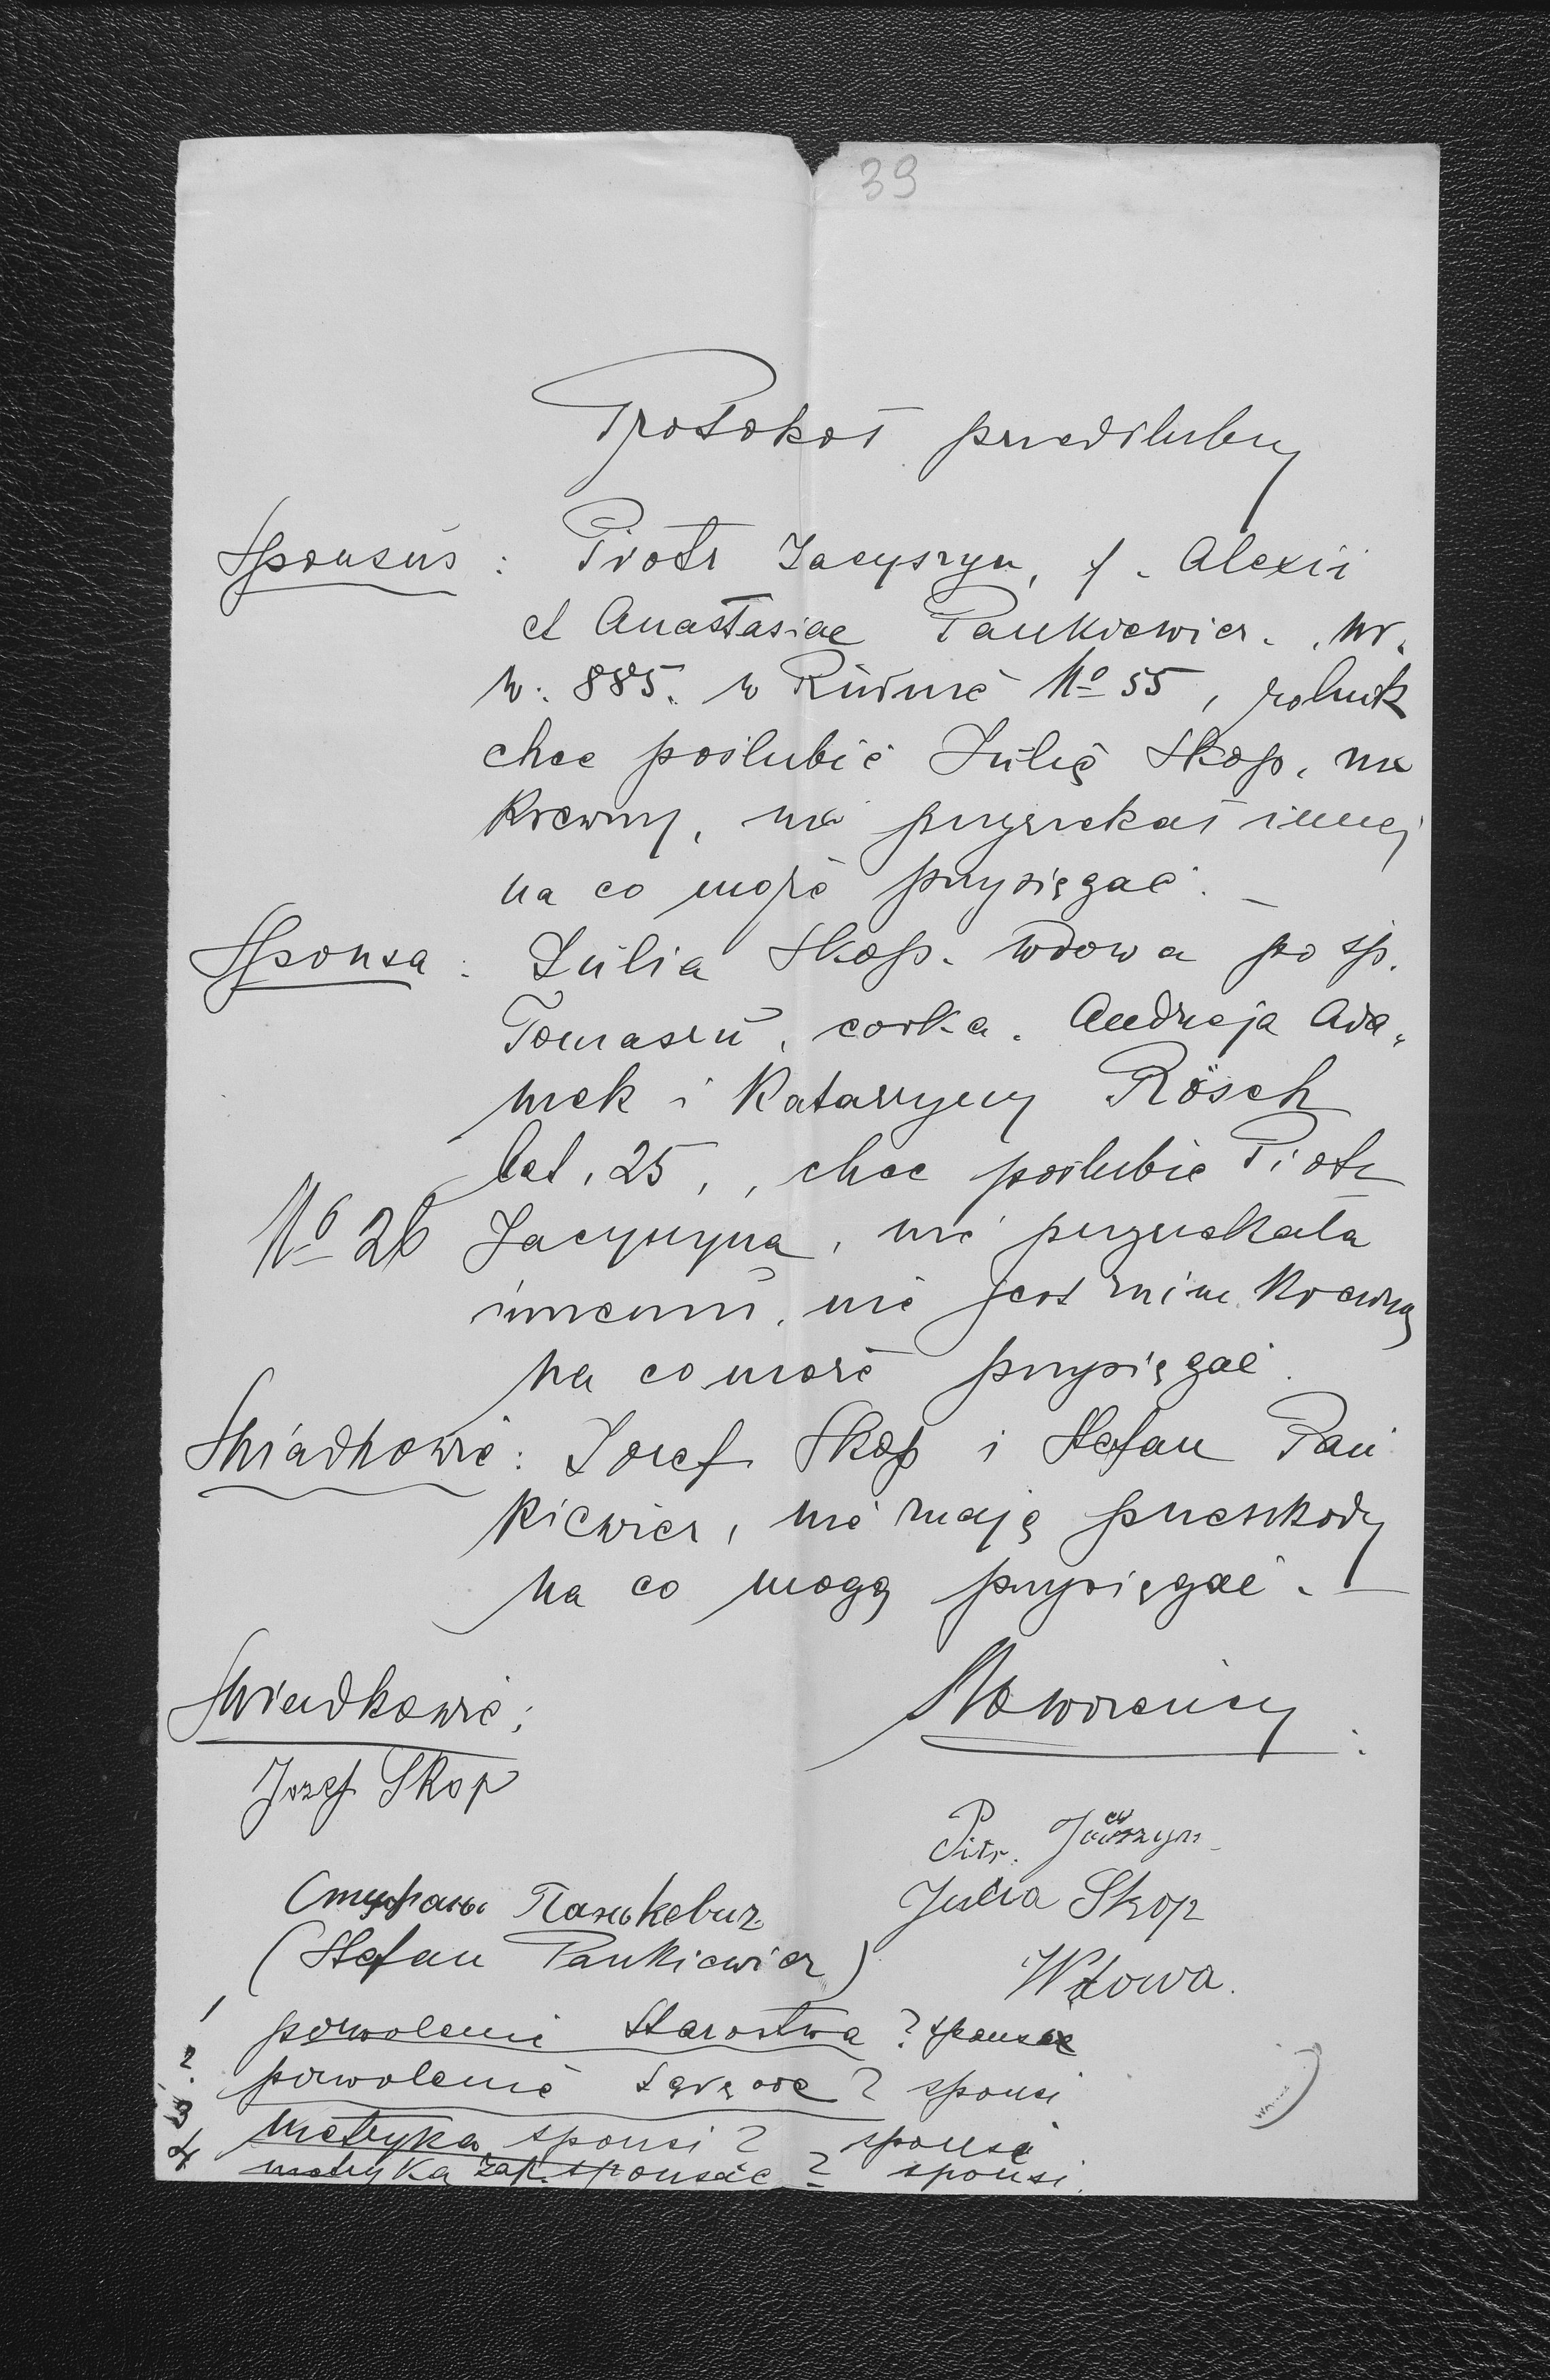 39
Protokół przedślubny
Sponsus : Piotr Jacyszyn, f. Alexii
et Anastasiae Pankiewicz. ur.
w. 885. w Rudnie No 55, rolnik
chce poślubić Julię Skop, nie
krewny, nie przyrzekał innej
na co może przysięgać. _
Sponsa : Julia Skop. wdowa po śp.
Tomaszu, córka. Andrzeja Ada„
mek i Katarzyny Rösch
lat. 25, , chce poślubić Piotr
No 26 Jacyszyna, nie przyrzekała
innemu, nie jest z nim krewną
na co może przysięgać.
Świadkowie: Józef Skop i Stefan Pań
kiewicz, nie znają przeszkody
na co mogą przysięgać. —
Świadkowie: Nowożeńcy.
Jozef Skop
Piotr. Jacyszyn
Стефанъ Панькевич. Julia Skop
(Stefan Pankiewicz) Wdowa.
1 pozwolenie Starostwa ? sponsae
2. pozwolenie Sądowe ? sponsi
3 metryka sponsi ? sponsi
4 metryka zap. sponsae ? sponsi.